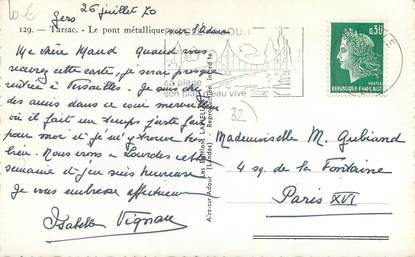 10 €
Gers 26 juillet 70
129. - Tarsac. - Le pont métallique sur l'Adour
Ma chère Maud Quand vous
recevrez cette carte, je serai presque
rentrée à Versailles. Je suis chez
des amis dans ce coin merveilleux
où il fait un temps juste fait
pour moi et je m'y trouve très
bien. Nous irons à Lourdes cette
semaine et j'en suis heureuse
Je vous embrasse affectueusement
Isabelle Vignau
sa plage
son plan d'eau vive
0,30
POSTES
REPUBLIQUE FRANÇAISE
32
Aire-sur-Adour (Landes)
Mademoiselle M. Gubiand
4 sq. de la Fontaine
Paris XVI